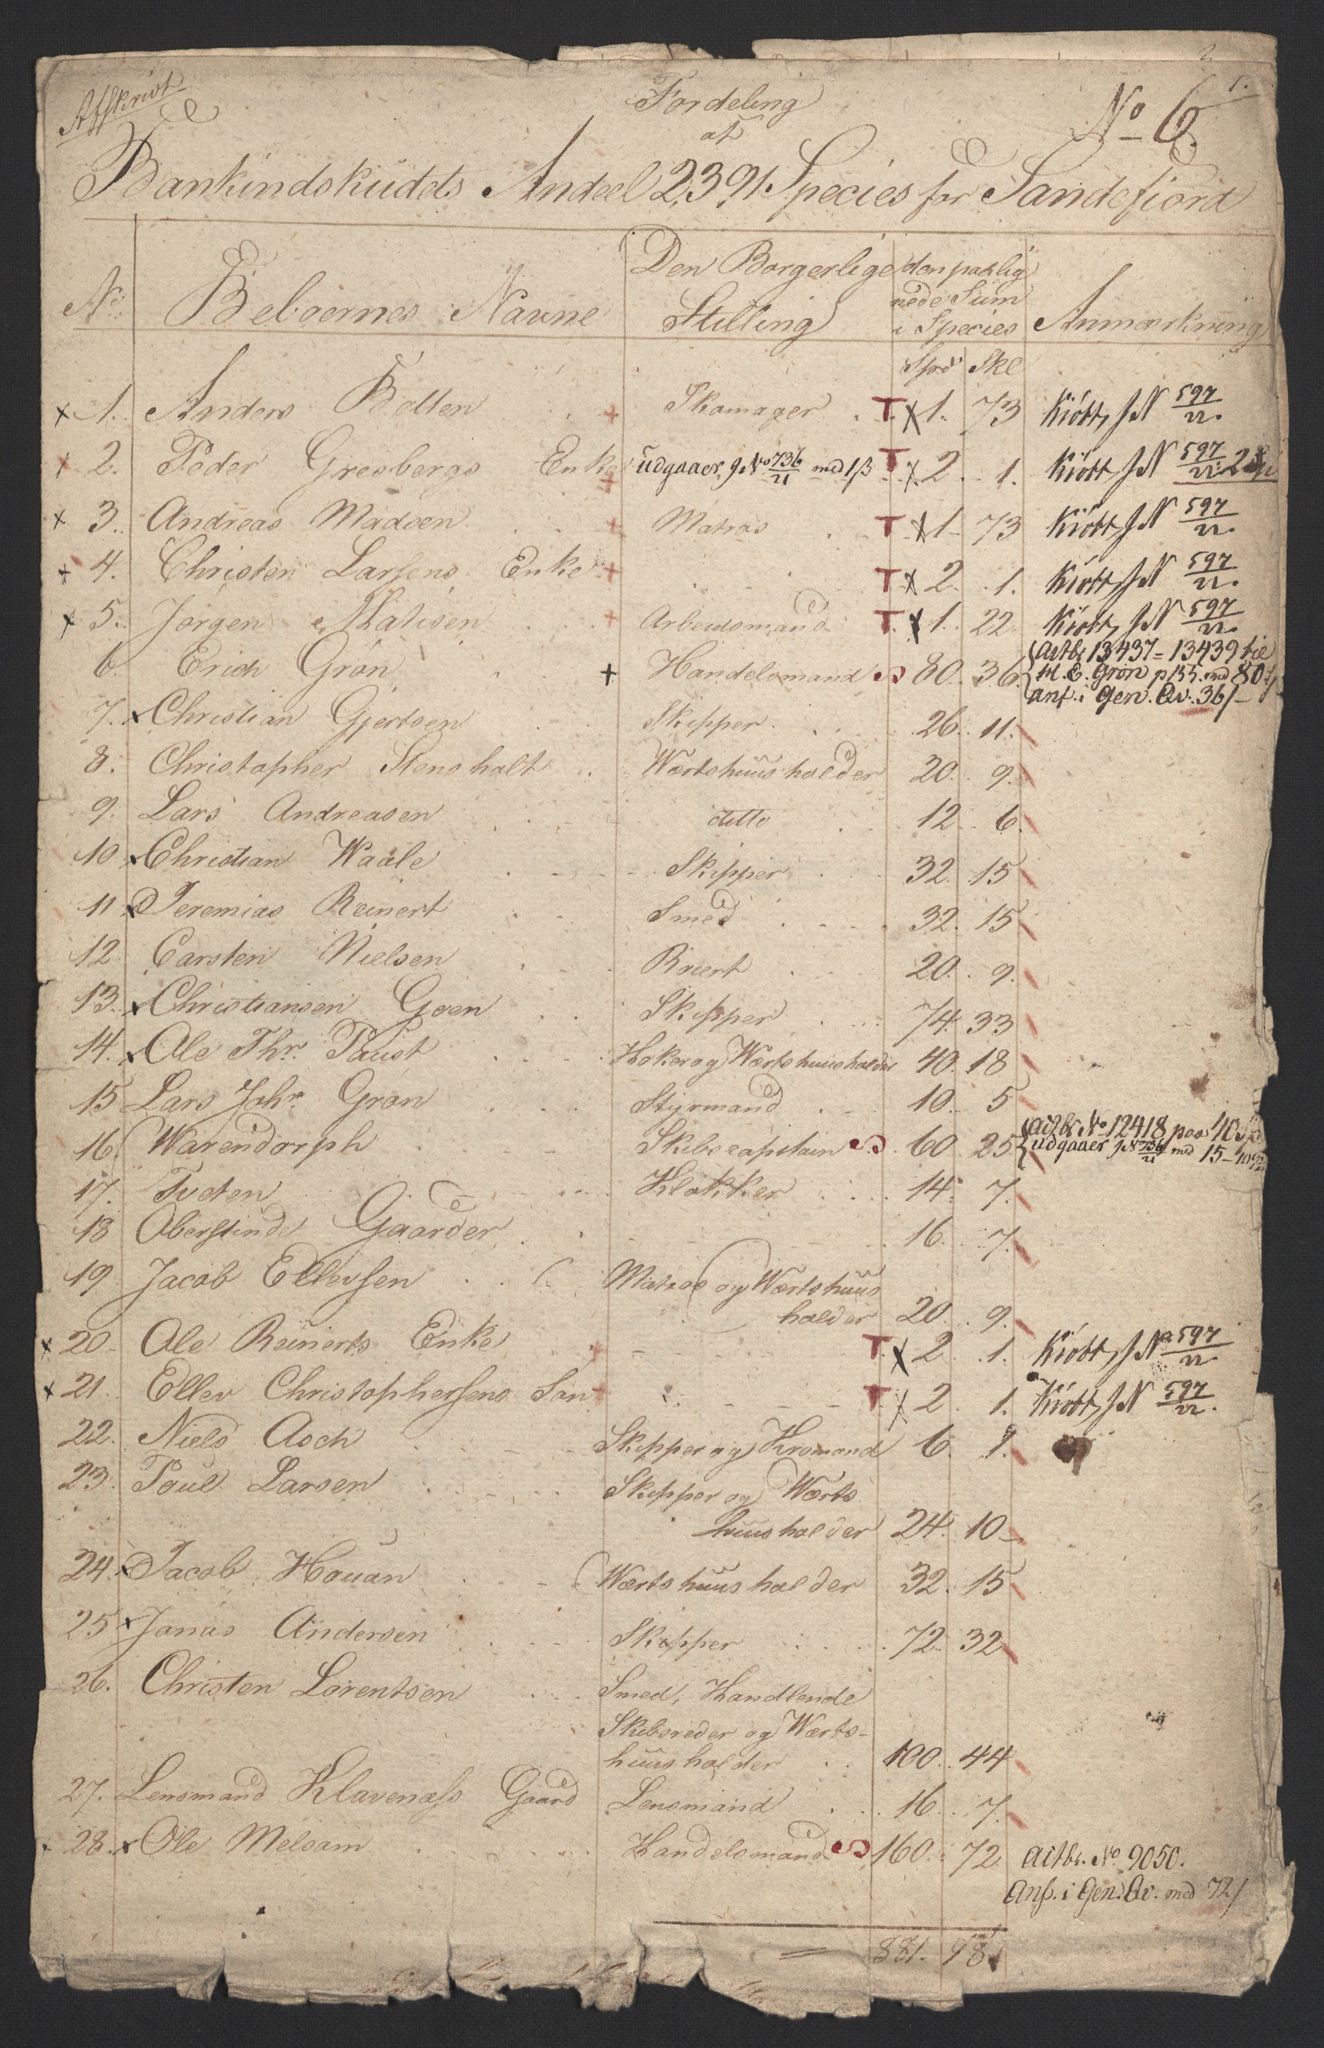 Afskrivt
1.
Fordeling
af
No 6.
Bankindskudds Andeel 2391 Species for Sandefiord
No Beboernes Navne Den Borgerlige Stilling den paalignede Sum i Species Anmærkning
Spd Skl
1. Anders Bolten Skomager T 1. 73 Kiøbt, J N 597/22.
2. Peder Gresbergs Enke udgaaer J No 736/21 med 1 ß T 2. 1. Kiøbt J N 597/22.
3. Andreas Madsen Matros T 1. 73 Kiøbt, J N 597/22.
4. Christen Larsens Enke T 2. 1. Kiøbt, J N 597/22.
5. Jørgen Matisen Arbeidsmand T 1. 22 Kiøbt, J N 597/22.
6. Erich Grøn Handelsmand 80. 36. Actbr 13437 = 13439 til
H. E. Grøn p 155. med 80
anf. i Gen. Qv. 36/-
7. Christian Gjertsen Skipper 26. 11.
8. Christopher Stensholt Værtshuusholder 20. 9.
9. Lars Andreasen ditto 12. 6.
10 Christian Waale Skipper 32. 15
11 Jeremias Reinert Smed 32. 15
12 Carsten Nielsen 20. 9.
13. Christiansen Goen Skipper 74. 33
14. Ole Thr. Paust Høker og Værtshuusholder 40. 18
15 Lars Johr. Grøn Styrmand 10. 5
16 Warendorph Skibscapitain 60. 25 Actbr No 12418 paa 40 Sp
udgaaer J N 736/21 med 15-
17. Tveten Klokker 14. 7.
18 Oberstind Gaarder 16. 7.
19 Jacob Ellevsen Matros og Værtshuus
holder 20. 9.
20. Ole Reinerts Enke T 2. 1. Kiøbt, J No 597/22.
21. Ellev Christophersens Søn T 2. 1. Kiøbt, J N 597/22.
22. Niels Asch Skipper og Kromand 6. 1.
23. Poul Larsen Skipper og Værts
huusholder 24. 10
24. Jacob Houan Værtshuusholder 32. 15
25 Jonas Andersen Skipper 72. 32
26. Christen Lorentsen Smed, Handlende
Skibsreder og Værts-
huusholder 100. 44
27. Lensmand Klavenæss Gaard Lensmand 16. 7.
28. Ole Melsom Handelsmand 160. 72 Actbr. No 9050.
Anf. i Gen. Qv. med 72/
= 881. 98.